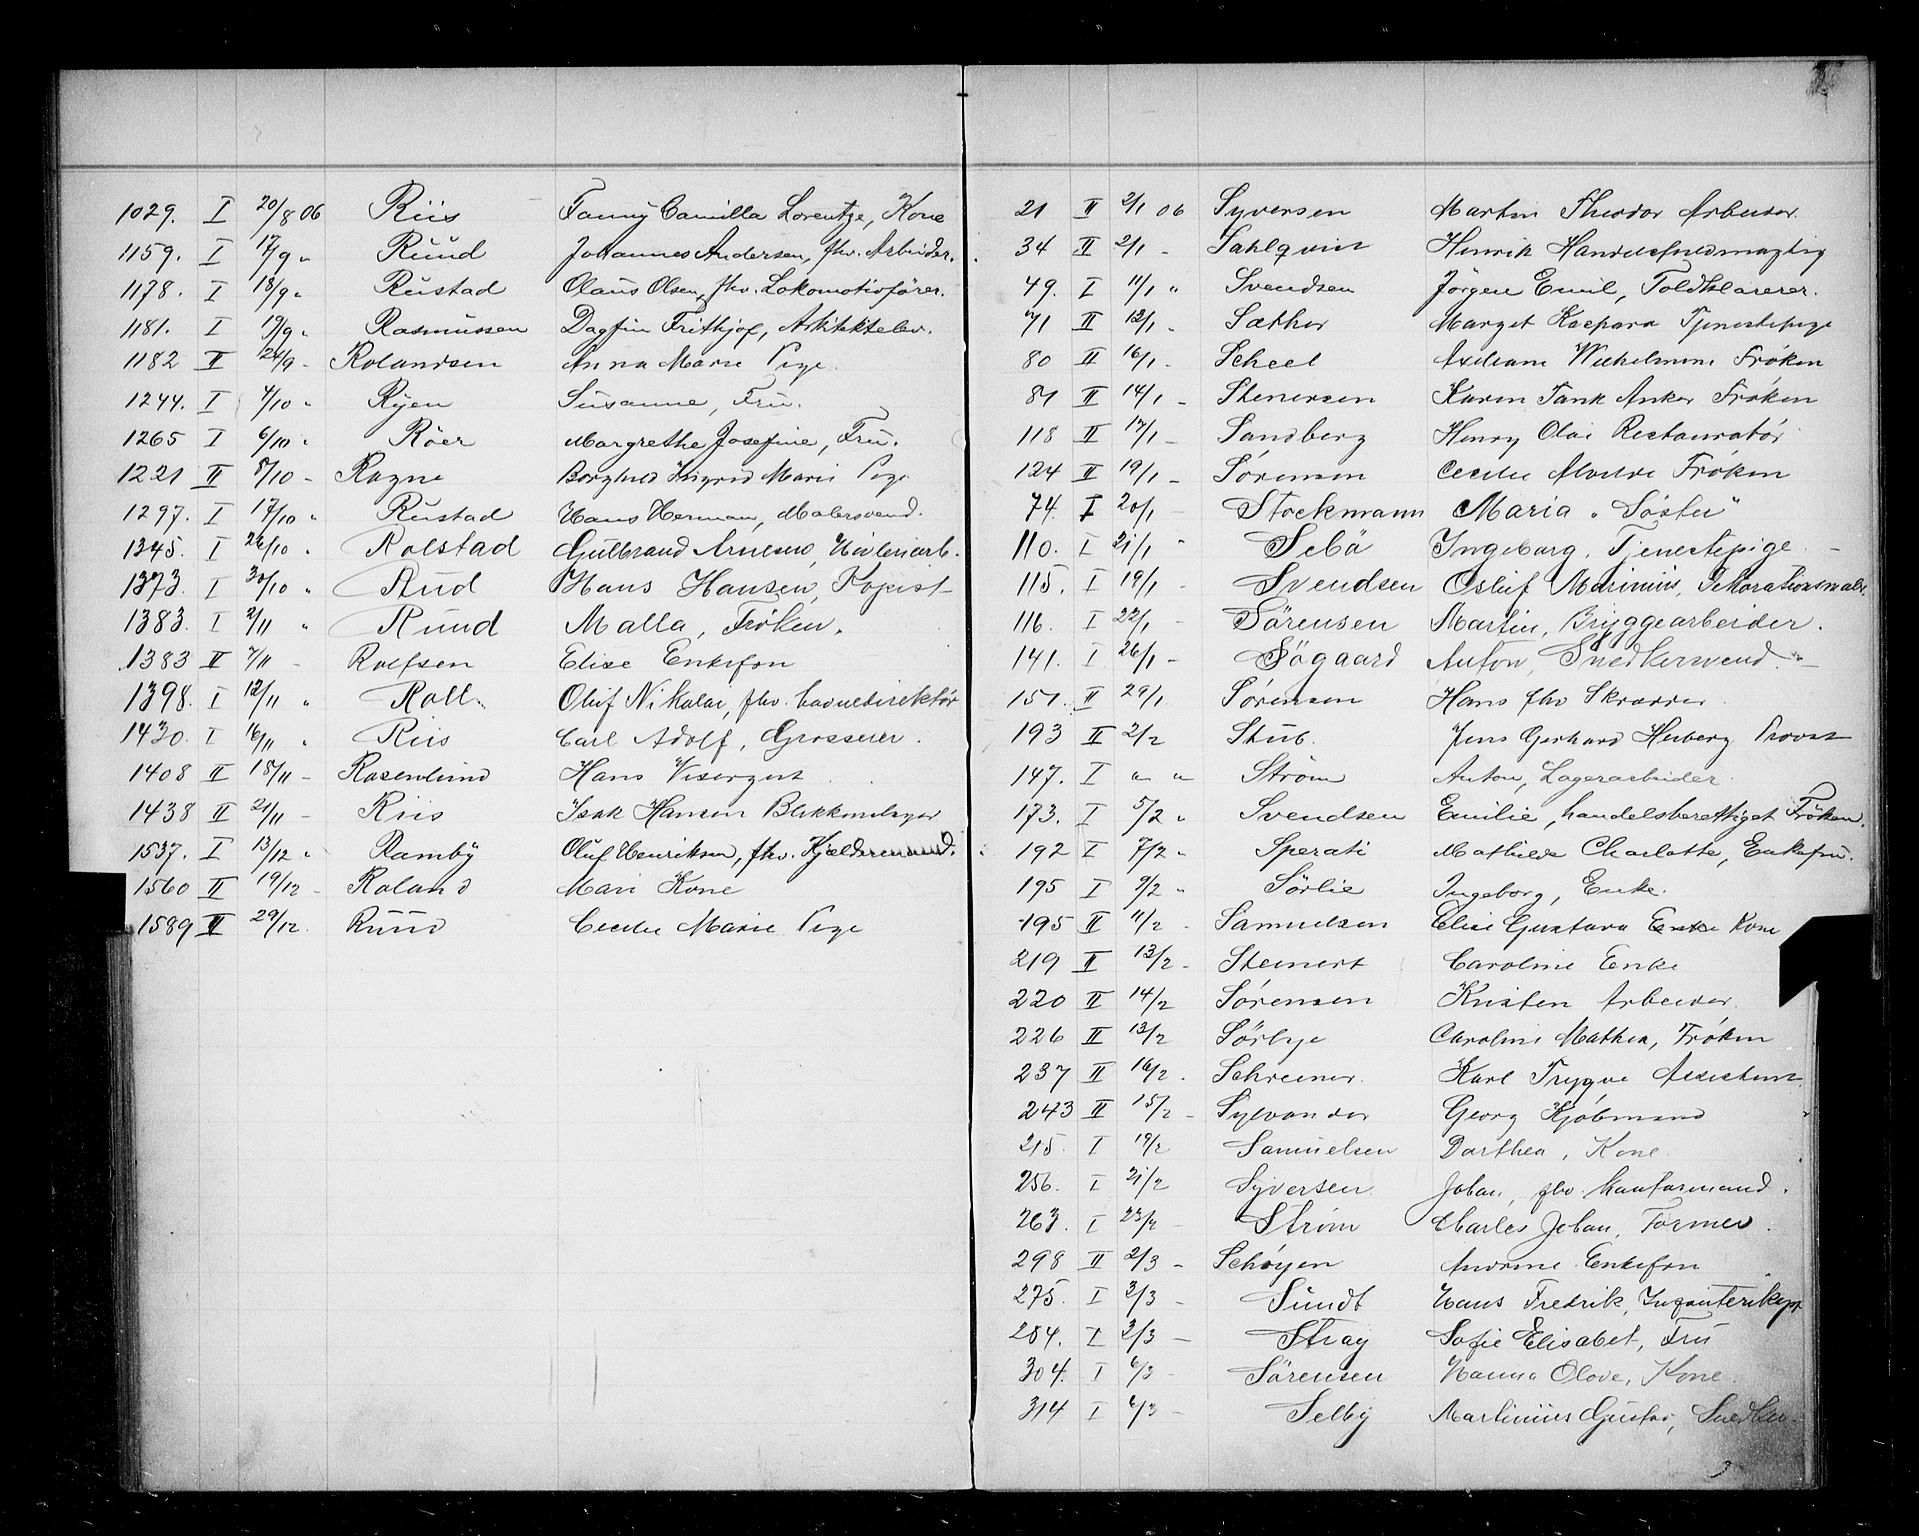 1029. I 20/8 06 Riis Fanny Camilla Lorentze, Kone
1159. I 17/9 " Ruud Johannes Andersen, fhv. Arbeider.
1178. I 18/9 " Rustad Olaus Olsen, fhv. Lokomotivfører.
1181. I 19/9 " Rasmussen Dagfin Fritjof, Arkitektelev.
1182 II 26/9 - Rolandsen Anna Marie Pige
1244. I 4/10 " Ryen Susanne, Fru.
1265 I 6/10 " Röer Margrethe Josefine, Fru.
1221 II 8/10 - Ragne Borghild Ingrid Marie Pige
1297. I 17/10 " Rustad Hans Herman, Malersvend.
1345. I 26/10 " Rolstad Gulbrand Arnesen,
1373. I 30/10 " Rud Hans Hansen, Kopist
1383. I 2/11 " Ruud Malla, Frøken.
1383 II 7/11 - Rolfsen Elise Enkefru
1398. I 12/11 " Roll. Oluf Nikolai, fhv. havnedirektör
1430. I 16/11 " Riis Carl Adolf, Grosserer.
1408 II 15/11 - Rosenlund Hans Visergut
1438 II 21/11 - Riis Isak Hansen Blikkenslager
1537. I 13/12 " Ramby Oluf Henriksen, fhv. Kjældermand.
1560 II 19/12 - Roland Mari Kone
1589 II 29/12. Ruud Cecilie Marie Pige
21 II 2/1 06 Syversen Martin Theodor Arbeider.
34 II 2/1 - Sahlqvist Henrik Handelsfuldmægtig
49. I 11/1 " Svendsen Jörgen Emil, Toldklarerer.
71 II 12/1 - Sæther Marget Kaspara Tjenestepige
80 II 16/1 - Scheel Wilhelmine Frøken
81 II 14/1 - Stenersen Karen Tank Anker Frøken
118 II 17/1 - Sandberg Henry Olai Restauratør
124 II 19/1 - Sørensen Cecilie Alvilde Frøken
74. I 20/1 - Stockmann Maria "Söster"
110. I 21/1 " Sebö Ingeborg, Tjenestepige. -
115. I 19/1 - Svendsen Osluf Marinius, Dekorationsmaler.
116. I 22/1 - Sörensen Martin, Bryggearbeider.
141. I 26/1 - Sögaard Anton, Snedkersvend. -
151. II 29/1 Sørensen Hans fhv Skrædder
193 II 2/2 - Stub. Jens Gerhard Heiberg Provst
147. I " " Strøm Anton, Lagerarbeider.
173. I 5/2 " Svendsen Emilie, handelsberettiget Fröken.
192 I 7/2 " Sperati Mathilde Charlotte, Enkefru.
195 I 9/2 " Sörlie Ingeborg, Enke.
195 II 11/2 - Samuelsen Elise Gustava Enke Kone
219 II 13/2 - Steinert Caroline Enke
220 II 14/2 - Sørensen Kristen Arbeider.
226 II 13/2 Sørbye Caroline Mathea, Frøken
237 II 16/2. Schreiner. Karl Trygve Assistent.
243 II 15/2 - Sylvander Georg Kjøbmand
215. I 19/2 Samuelsen Dorthea, Kone.
256. I 21/2 - Syversen Johan, fhv. Kontormand.
263. I 23/2 - Strøm Charles Johan, Former.
298 II 2/3 - Schøyen Andrine Enkefru
275. I 3/3 - Sundt Hans Fredrik, Infanterikpt
284. I 3/3 - Stray Sofie Elisabet, Fru
304. I 6/3 - Sörensen Hanna Olove, Kone.
314 I 6/3 - Selby Martinius Gustav, Snedker.